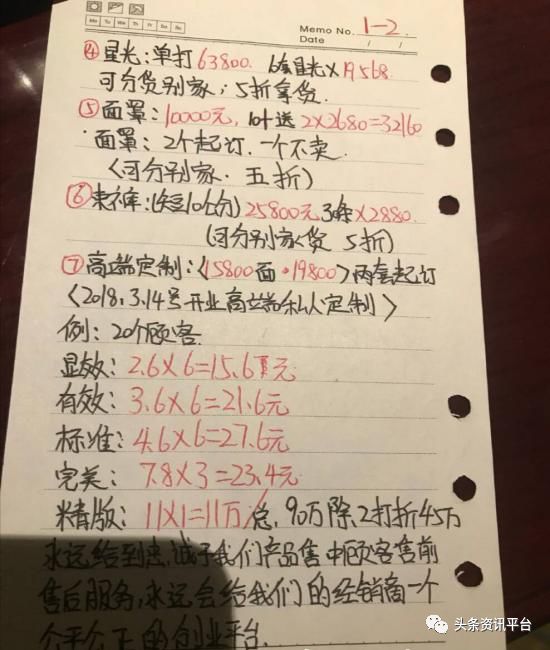 Memo No. 1-2.
Mo Tu We Th Fr Sa Su
Date / /
④星光:单打63800. 6套星光×19568.
可分货别家,5折拿货.
⑤面罩:10000元,10送2×2680=32160
面罩:2个起订.一个不卖.
(可分别家.五折)
⑥束裤:(短10长分)25800元3条×2880.
(可分别家货 5折)
⑦高端定制:〈15800面·19800〉两套起订
〈2018.3.14号开业高端私人定制〉
例:20个顾客.
显效:2.6×6=15.6元
有效:3.6×6=21.6元
标准:4.6×6=27.6元
完美:7.8×3=23.4元
精版:11×1=11万/总,90万除2打折45万
永远给到忠诚于我们产品售中顾客售前
售后服务,永远会给我们的经销商一个
的创业平台.
头条资讯平台